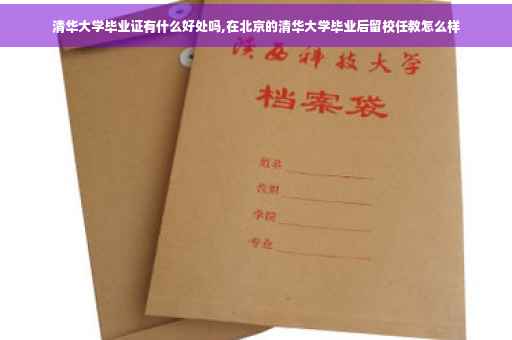 清华大学毕业证有什么好处吗,在北京的清华大学毕业后留校任教怎么样
陕西科技大学
档案袋
姓名
学院
专业